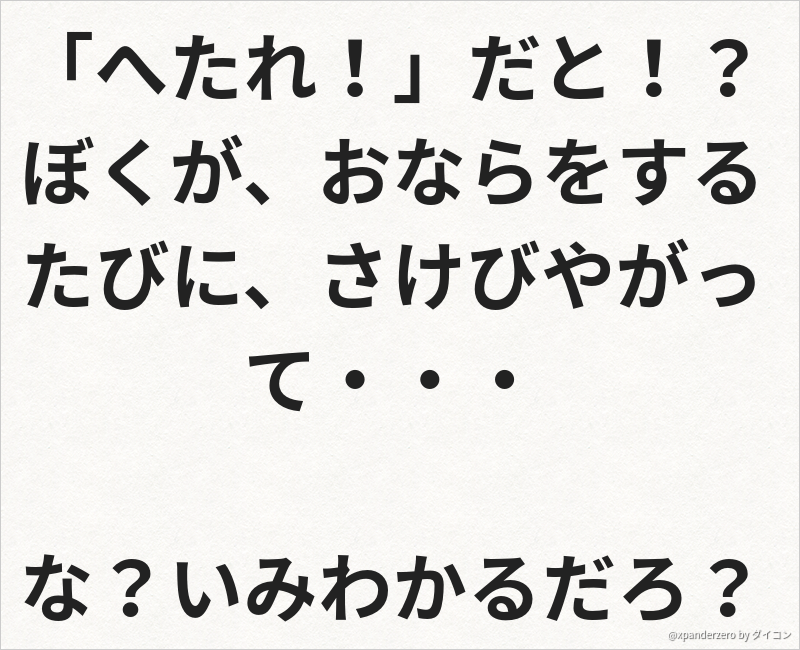 「へたれ！」だと！？
ぼくが、おならをする
たびに、さけびやがっ
て・・・
な？いみわかるだろ？
@xpanderzero by ダイコン